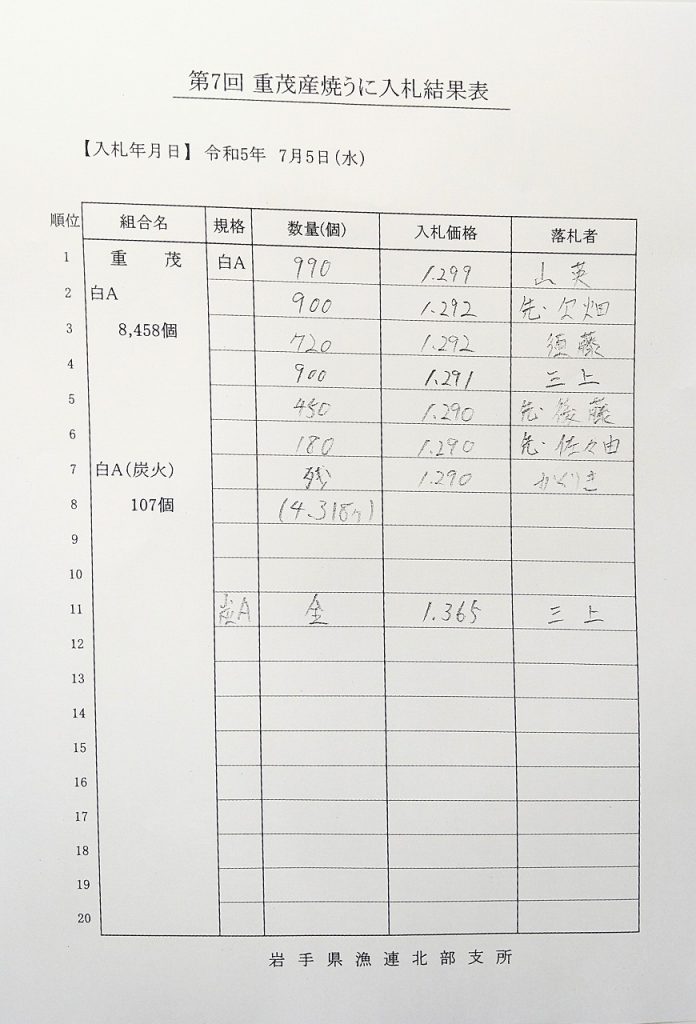 第7回 重茂産焼うに入札結果表
【入札年月日】 令和5年 7月5日(水)
順位 組合名 規格 数量(個) 入札価格 落札者
1 重 茂 白A 990 1.299 山 英
2 白A 900 1.292 先・欠畑
3 8,458個 720 1.292 須藤
4 900 1.291 三上
5 450 1.290 先・後藤
6 180 1.290 先・佐々由
7 白A(炭火) 残 1.290 かくりき
8 107個 (4.318ヶ)
9
10
11 炭A 全 1.365 三上
12
13
14
15
16
17
18
19
20
岩手県漁連北部支所